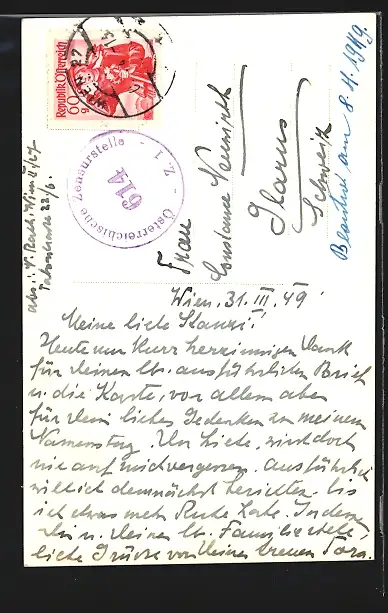 Republik Österreich
60 g
WIEN 27
Österreichische Zensurstelle
614
Z. 1
abs.: Wien II/27
22/6.
Frau
Constanze
Glarus
Schweiz
Beantw. am 8.4.1949.
Wien, 31.III.49
Meine liebe Stanzi!
Heute nur kurz herzinnigen Dank
für deinen lb. ausführlichen Brief
u. die Karte, vor allem aber
für dein liebes Gedenken zu meinem
Namenstag. Du Liebe, wirst doch
nie auf mich vergessen. Ausführlich
will ich demnächst berichten bis
ich etwas mehr Ruhe habe. Indessen
dir u. deiner lb. Familie viele
liebe Grüsse von deiner treuen